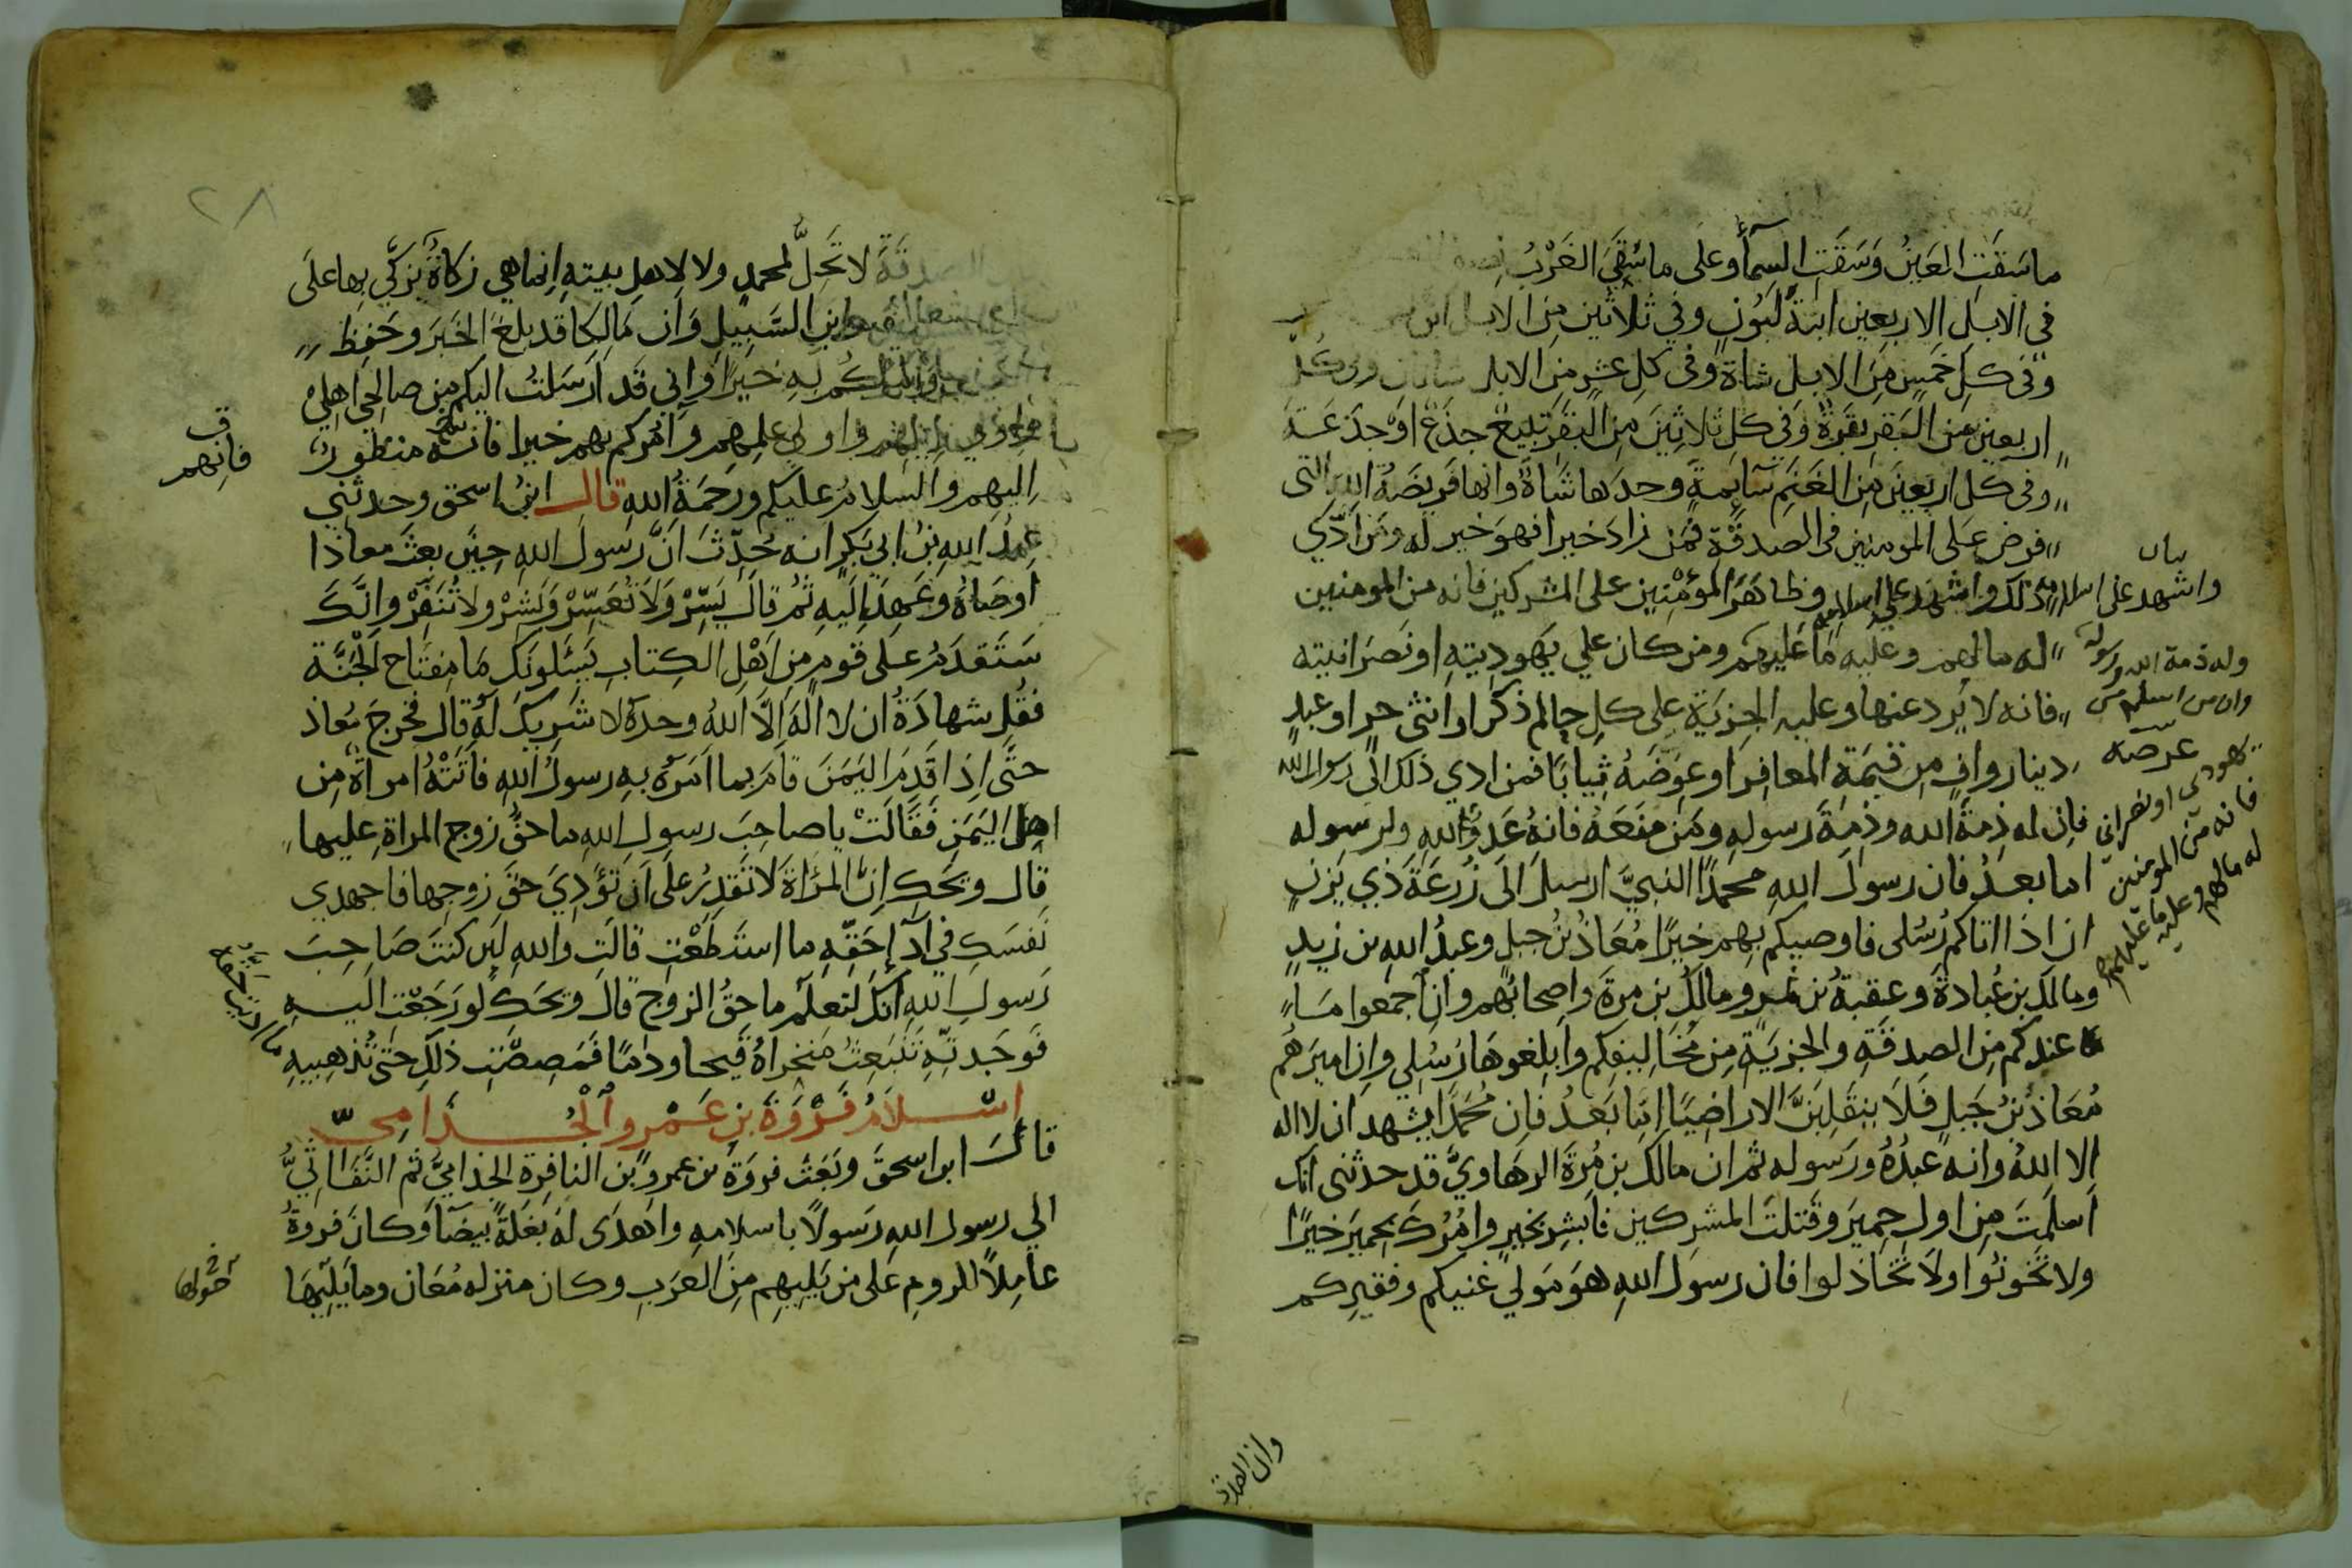 ما سَقَتِ العَينُ وَسَقَتِ السمآءُ وعَلَى ما سُقِيَ الغَرْبُ نصف
في الابل الاربعين ابنةُ لَبُونٍ وفي ثلاثين مِن الابل ابن
وفي كلِ خَمسٍ مِنَ الابل شاةٌ وفي كل عَشرٍ من الابل شاتان وفي كلِّ
اربعين مِنَ البَقَرِ بَقَرةٌ وَفي كلِ ثلاثينَ من البَقَرِ تَبِيعٌ جذَعٌ اوْجذَعَةٌ
وفي كل اربعينَ مِنَ الغَنَمِ سَآيِمةً وحدَها شَاةٌ وانها فَريضَةُ الله التي
فرضَ عَلى المومنين في الصدقَةِ فمن زادَ خيرا فهوَ خير له ومَن ادَّي
ذلك واشهد على اسلامه وظاهَرَ المؤمنين على المشركين فانه من المومنين
له ما لهم وعليه ما عَليهم ومن كان على يَهوديتِهِ او نَصرَانيته
فانه لا يُرد عنها وعليه الجزيَةُ على كلِ حالم ذكر او انثى حر او عبدٍ
دينار وافٍ مِن قيمَة المعافِر او عِوَضَهُ ثيابًا فمن ادي ذلك الى رسول الله
فان له ذِمةَ الله وذِمةَ رسولهِ ومَن منَعَهُ فانهُ عَدوٌ لله ولرسوله
اما بعدُ فان رسولَ اللهِ محمدًا النبيَّ ارسلَ الى زُرعَةَ ذي يَزنٍ
ان اذا اتاكم رُسُلى فاوصيكم بِهم خيرًا مُعَاذُ بنُ جبلٍ وعبدُ اللهِ بن زيدٍ
ومالك بن عُبادةَ وعقبةُ بن نمرٍ ومالكُ بن مرةَ واصحابُهم وان اجمعوا ما
عندكم مِن الصدقَةِ والجزيَةِ مِن مُخَاليفكم وابلغوهَا رُسُلي وان اميرَهُم
مُعَاذُ بنُ جَبلٍ فَلَا يَنقَلِبَنَّ الا راضِيًا اما بَعدُ فان مُحمَّدًا يشهد ان لا اله
الا اللهُ وانه عبدُهُ ورَسوله ثم ان مالك بن مُرَّةَ الرهَاويَّ قد حدثني انك
اَسلَمتَ مِن اولِ حِميرَ وقَتلتَ المشركين فابشِر بخيرٍ وامُرُكَ بحميرَ خيرًا
ولا تَخونُوا ولَا تَخاذلوا فان رسولَ اللهِ هوَ مَولى غنيكم وفقيركم
واشهد على اسلامه
وله ذمة الله ورسوله
وان من اسلم من
يهودى او نصرانى
فانه من المومنين
له ما لهم وعليه ما عليهم
عرضه
وان الصدقة
٢٨
الصدقَةَ لا تَحِلُّ لمحمدٍ ولا لاهلِ بيتهِ اِنما هي زكاةٌ يزكَّي بها على
وابنِ السَّبِيلِ وَان مَالِكًا قد بلغَ الخَبَرَ وحَفِظَ
به خيرًا وَاني قد ارسَلتُ اليكم مِن صالحي اهلي
واولي عِلمِهِم وآمُركم بهم خيرا فانه منظورٌ
اِليهم والسلامُ عليكم ورحمَةُ اللهِ قال ابنُ اسحق وحدثني
عبدُ اللهِ بنُ ابي بَكرٍ انه حُدِّثَ انَّ رَسولَ اللهِ حِينَ بعثَ معاذا
اَوصَاهُ وَعَهِدَ اِليهِ ثم قالَ يَسِّرْ وَلَا تُعَسِّرْ وَبَشِّرْ ولا تُنَفِّرْ وانَّكَ
سَتَقدَمُ عَلى قومٍ مِن اَهْلِ الكِتابِ يَسئَلونَكَ مَا مِفتَاح الجَنَّة
فقُل شهادَةُ ان لا الهَ الَّا اللهُ وحدَهُ لا شَرِيكَ لهُ قال فخرجَ مُعاذ
حتَّى اِذَا قَدِمَ اليَمَنَ قامَ بما اَمَرَهُ بهِ رسولُ اللهِ فَاَتَتْهُ امراةٌ مِن
اهلِ اليَمَنِ فَقَالَتْ يا صاحِبَ رسول اللهِ ما حقُّ زوج المراةِ عليها
قال ويحَكِ اِنَّ المرْاةَ لا تَقدِرُ على اَن تؤَدِيَ حقَّ زوجها فاجهدي
نَفسَكِ في ادآءِ حَقِّهِ ما استَطَعْتِ قالَتِ والله لين كنتَ صَاحِبَ
رَسولِ اللهِ اِنكَ لتعلَمُ ما حقُ الزوج قالَ ويحَكِ لو رَجَعْتِ اليهِ
فَوَجَدتِّهِ تَنبَعِثُ مَنخراهُ قَيحا ودَمًا فَمَصِصْتِ ذلكَ حَتى تُذهِبيهِ
اِسْلَامُ فَرْوَةَ بنِ عَمْرٍو الْجُذَامِيّ
قالَ ابن اسحقَ وبَعَثَ فروَةُ بن عمرو بن النافرة الجُذَاميُّ ثم النَّفَاثيُّ
الى رسول اللهِ رَسولًا باسلامهِ واَهدَى لهُ بَغلَةً بيضَآ وكانَ فروةُ
عامِلًا للرومِ عَلى مَن يَليهِم مِنَ العَرَبِ وكان منزله مُعَان وما يَليهَا
ف
فانهم
ما اديت حقه
حولها